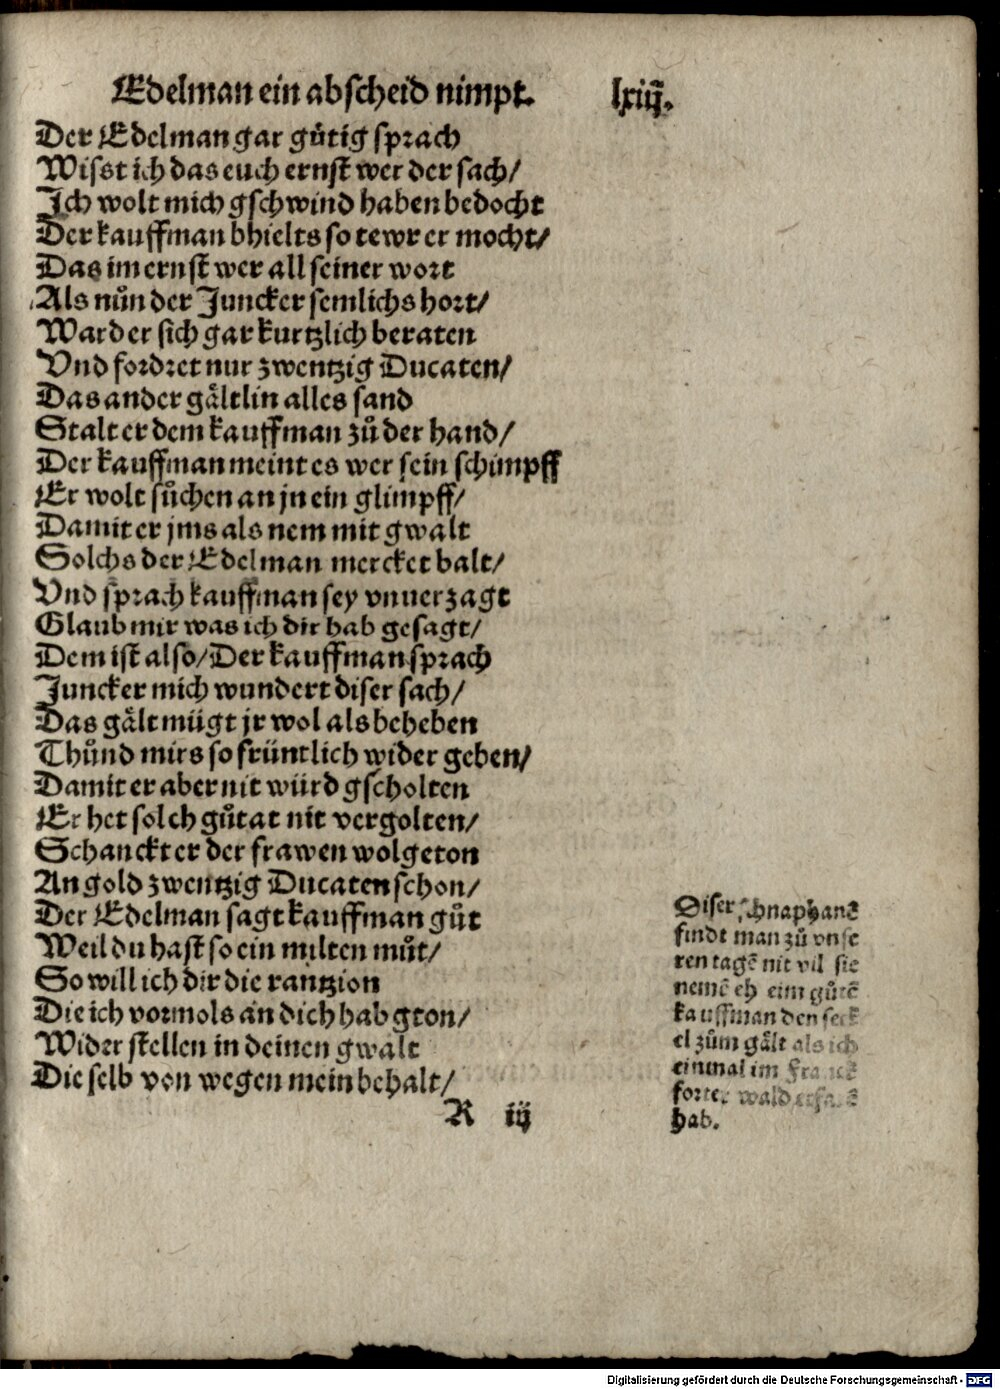 Edelman ein abscheid nimpt. lxiij.
Der Edelman gar gůtig sprach
Wisst ich das euch ernst wer der sach/
Ich wolt mich gschwind haben bedocht
Der kauffman bhielts so tewr er mocht/
Das im ernst wer all seiner wort
Als nůn der Juncker semlichs hort/
Ward er sich gar kurtzlich beraten
Vnd fordret nur zwentzig Ducaten/
Das ander gåltlin alles sand
Stalt er dem kauffman zů der hand/
Der kauffman meint es wer sein schimpff
Er wolt sůchen an jn ein glimpff/
Damit er jms als nem mit gwalt
Solchs der Edelman mercket balt/
Vnd sprach kauffman sey vnuerzagt
Glaub mir was ich dir hab gesagt/
Dem ist also/ Der kauffman sprach
Juncker mich wundert diser sach/
Das gålt mügt jr wol als beheben
Thůnd mirs so früntlich wider geben/
Damit er aber nit würd gscholten
Er het solch gůtat nit vergolten/
Schanckt er der frawen wolgeton
An gold zwentzig Ducaten schon/
Der Edelman sagt kauffman gůt
Weil du hast so ein milten můt/
So will ich dir die rantzion
Die ich vormols an dich hab gton/
Wider stellen in deinen gwalt
Die selb von wegen mein behalt/
R iij
Diser schnaphanē
findt man zů vnse
ren tagē nit vil sie
nemē eh eim gůtē
kauffman den seck
el zům gålt als ich
einmal im Franck
forter wald
hab.
Digitalisierung gefördert durch die Deutsche Forschungsgemeinschaft - DFG